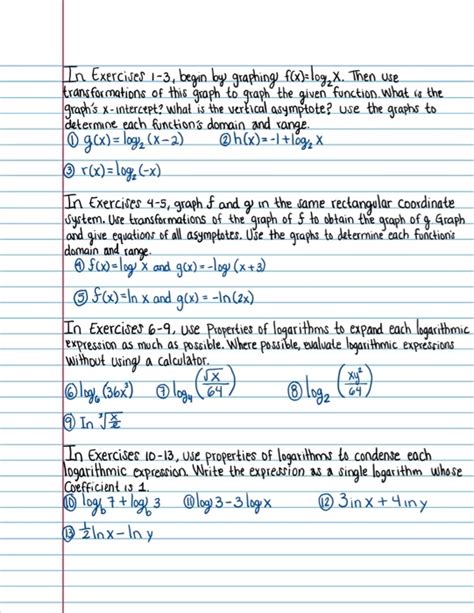 In Exercises 1-3, begin by graphing f(x)=log₂X. Then use
transformations of this graph to graph the given function. What is the
graph's x-intercept? What is the vertical asymptote? Use the graphs to
determine each function's domain and range.
① g(x)=log₂(x-2) ② h(x)=-1+log₂X
③ r(x)=log₂(-x)
In Exercises 4-5, graph f and g in the same rectangular coordinate
system. Use transformations of the graph of f to obtain the graph of g. Graph
and give equations of all asymptotes. Use the graphs to determine each function's
domain and range.
④ f(x)=log X and g(x)=-log(x+3)
⑤ f(x)=ln x and g(x)=-ln(2x)
In Exercises 6-9, use Properties of logarithms to expand each logarithmic
expression as much as possible. Where possible, evaluate logarithmic expressions
without using a calculator.
⑥ log₆(36x³) ⑦ log₄(√X/64) ⑧ log₂(xy²/64)
⑨ In ∛(x/2)
In Exercises 10-13, use properties of logarithms to condense each
logarithmic expression. Write the expression as a single logarithm whose
Coefficient is 1.
⑩ log_b 7+log_b 3 ⑪ log3-3logx ⑫ 3inx+4iny
⑬ ½lnx-ln y